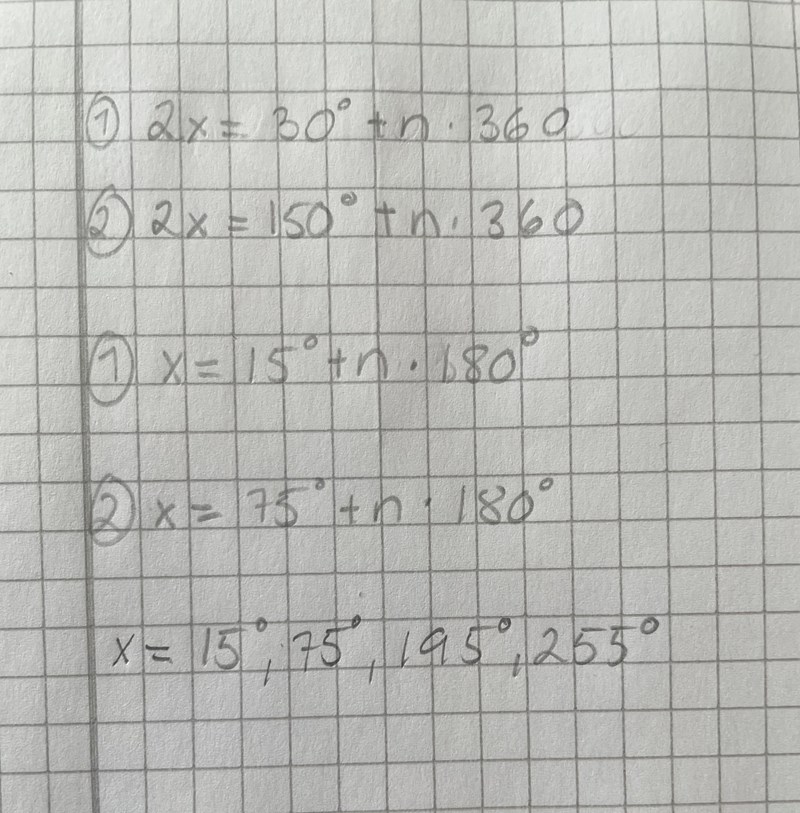 ① 2x = 30° + n · 360
② 2x = 150° + n · 360
① x = 15° + n · 180°
② x = 75° + n · 180°
x = 15°, 75°, 195°, 255°